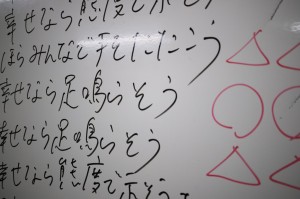 幸せなら態度で示そう
ほらみんなで手をたたこう
幸せなら足鳴らそう
幸せなら足鳴らそう
幸せなら態度で示そうよ